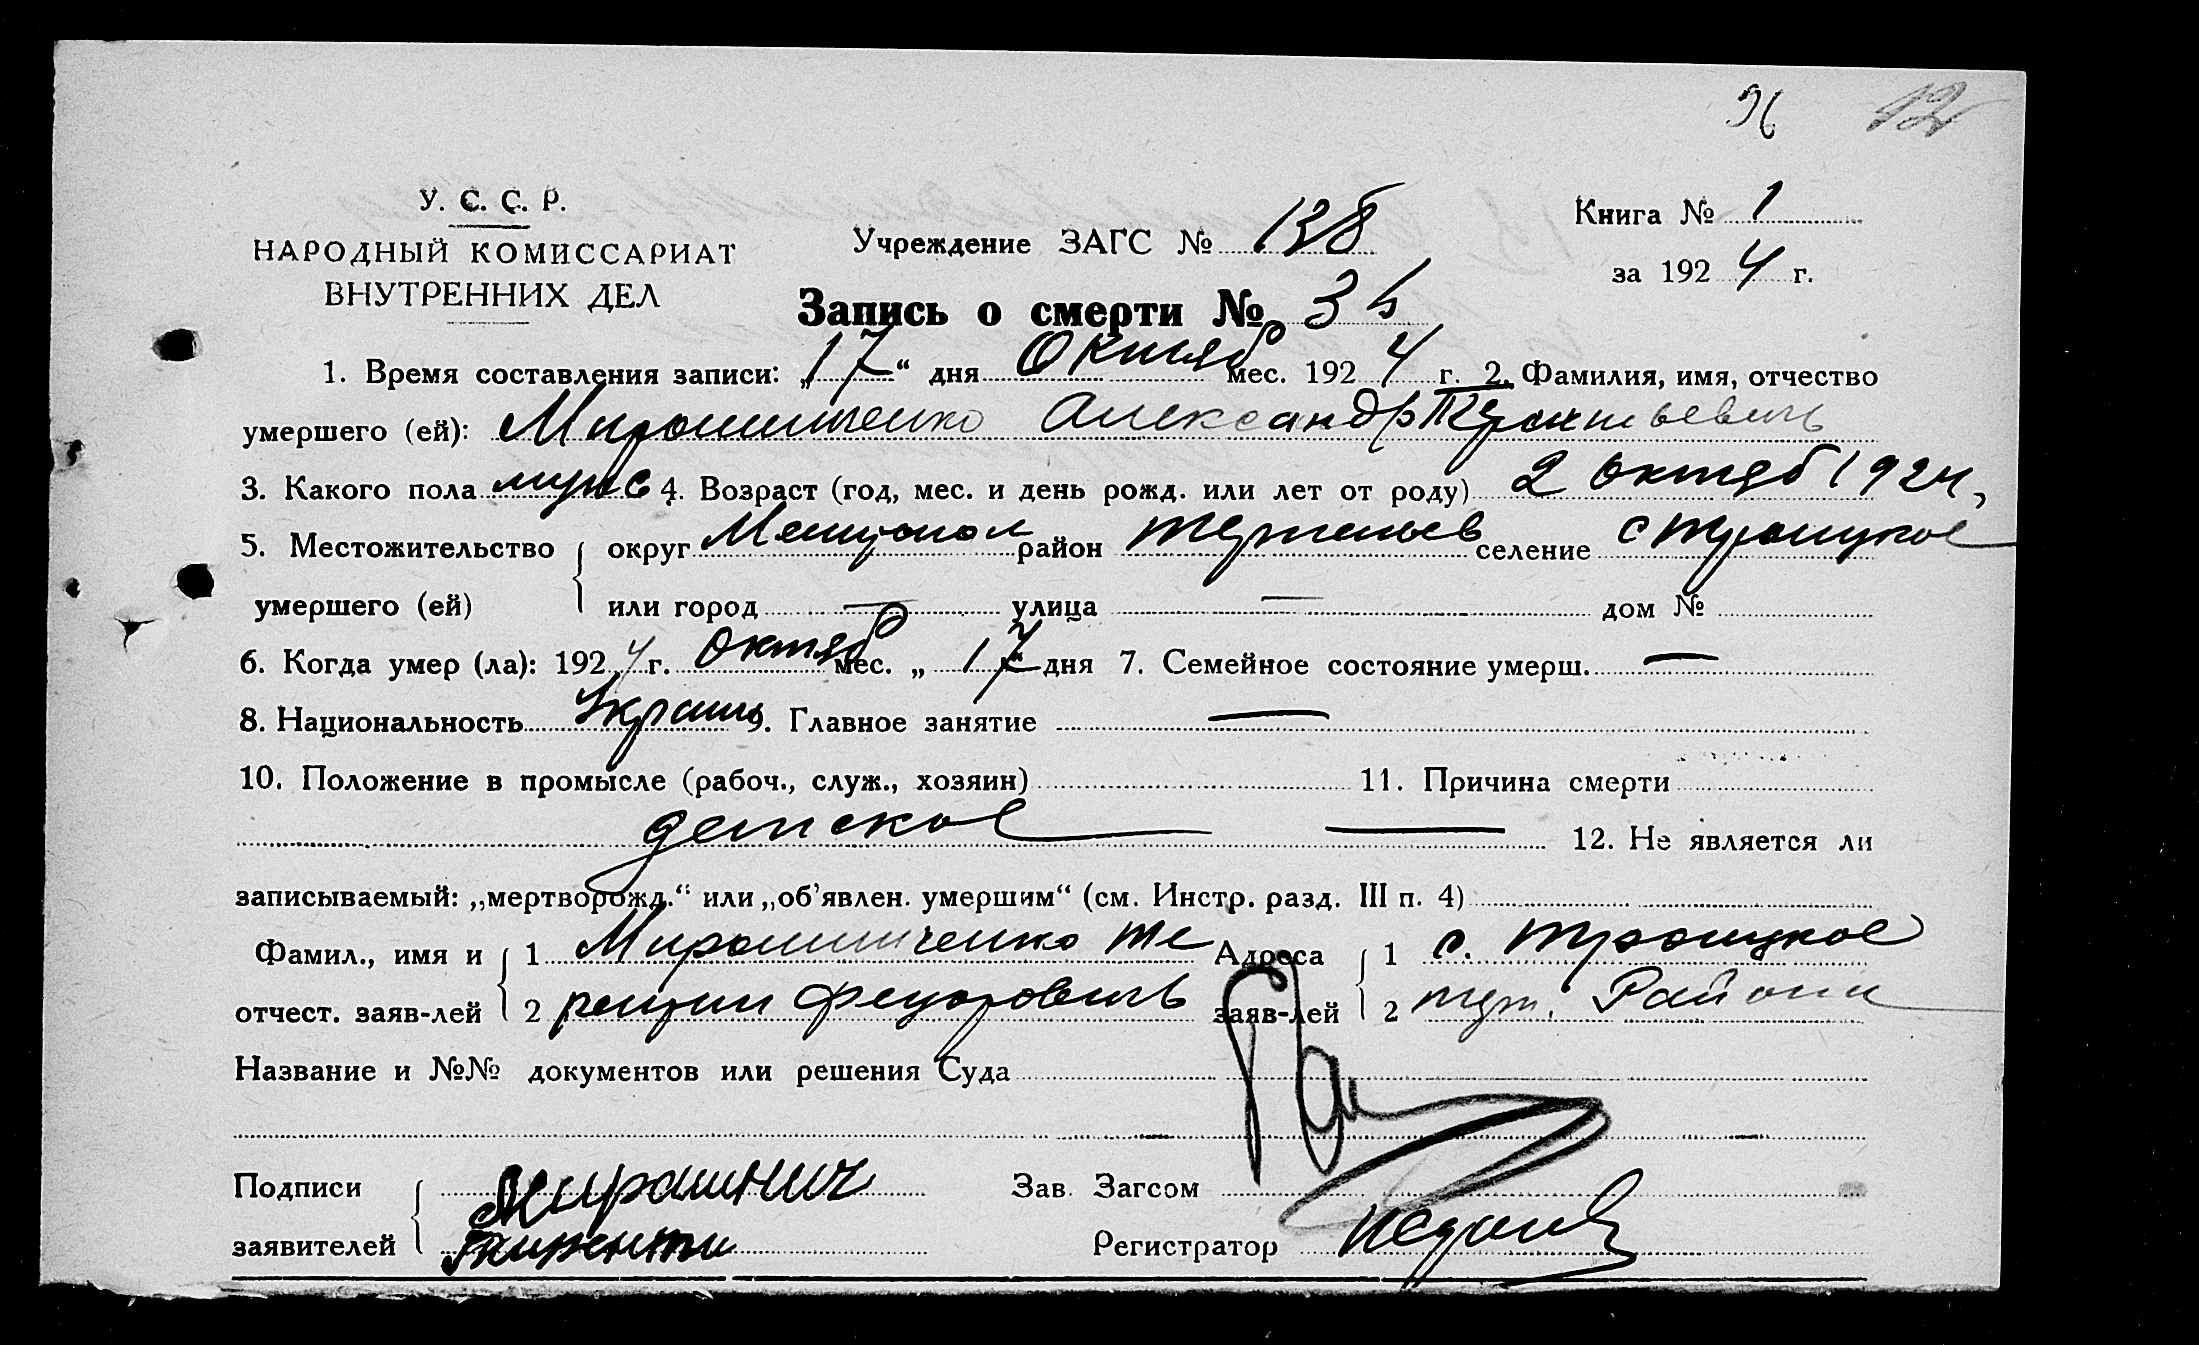 12
У. С. С. Р.
НАРОДНЫЙ КОМИССАРИАТ
ВНУТРЕННИХ ДЕЛ
Учреждение ЗАГС № 138
Книга № 1
за 1924 г.
Запись о смерти № 35
1. Время составления записи: „17“ дня Октяб мес. 1924 г. 2. Фамилия, имя, отчество
умершего (ей): Мирошниченко Александр Терентьевичь
3. Какого пола муж 4. Возраст (год, мес. и день рожд. или лет от роду) 2 октяб 1924,
5. Местожительство округ Мелитопол район Терпеньев селение с Троицкое
умершего (ей) или город — улица — дом №
6. Когда умер (ла): 1924 г. Октяб мес. „17“ дня 7. Семейное состояние умерш. —
8. Национальность Украин 9. Главное занятие —
10. Положение в промысле (рабоч., служ., хозяин) 11. Причина смерти
детское — 12. Не является ли
записываемый: „мертворожд.“ или „об'явлен. умершим“ (см. Инстр. разд. III п. 4)
Фамил., имя и 1 Мирошниченко Те Адреса 1 с. Троицкое
отчест. заяв-лей 2 рентии Федоровичь заяв-лей 2 тер. Района
Название и №№ документов или решения Суда
Подписи Мирошнич Зав. Загсом
заявителей Тиренти Регистратор